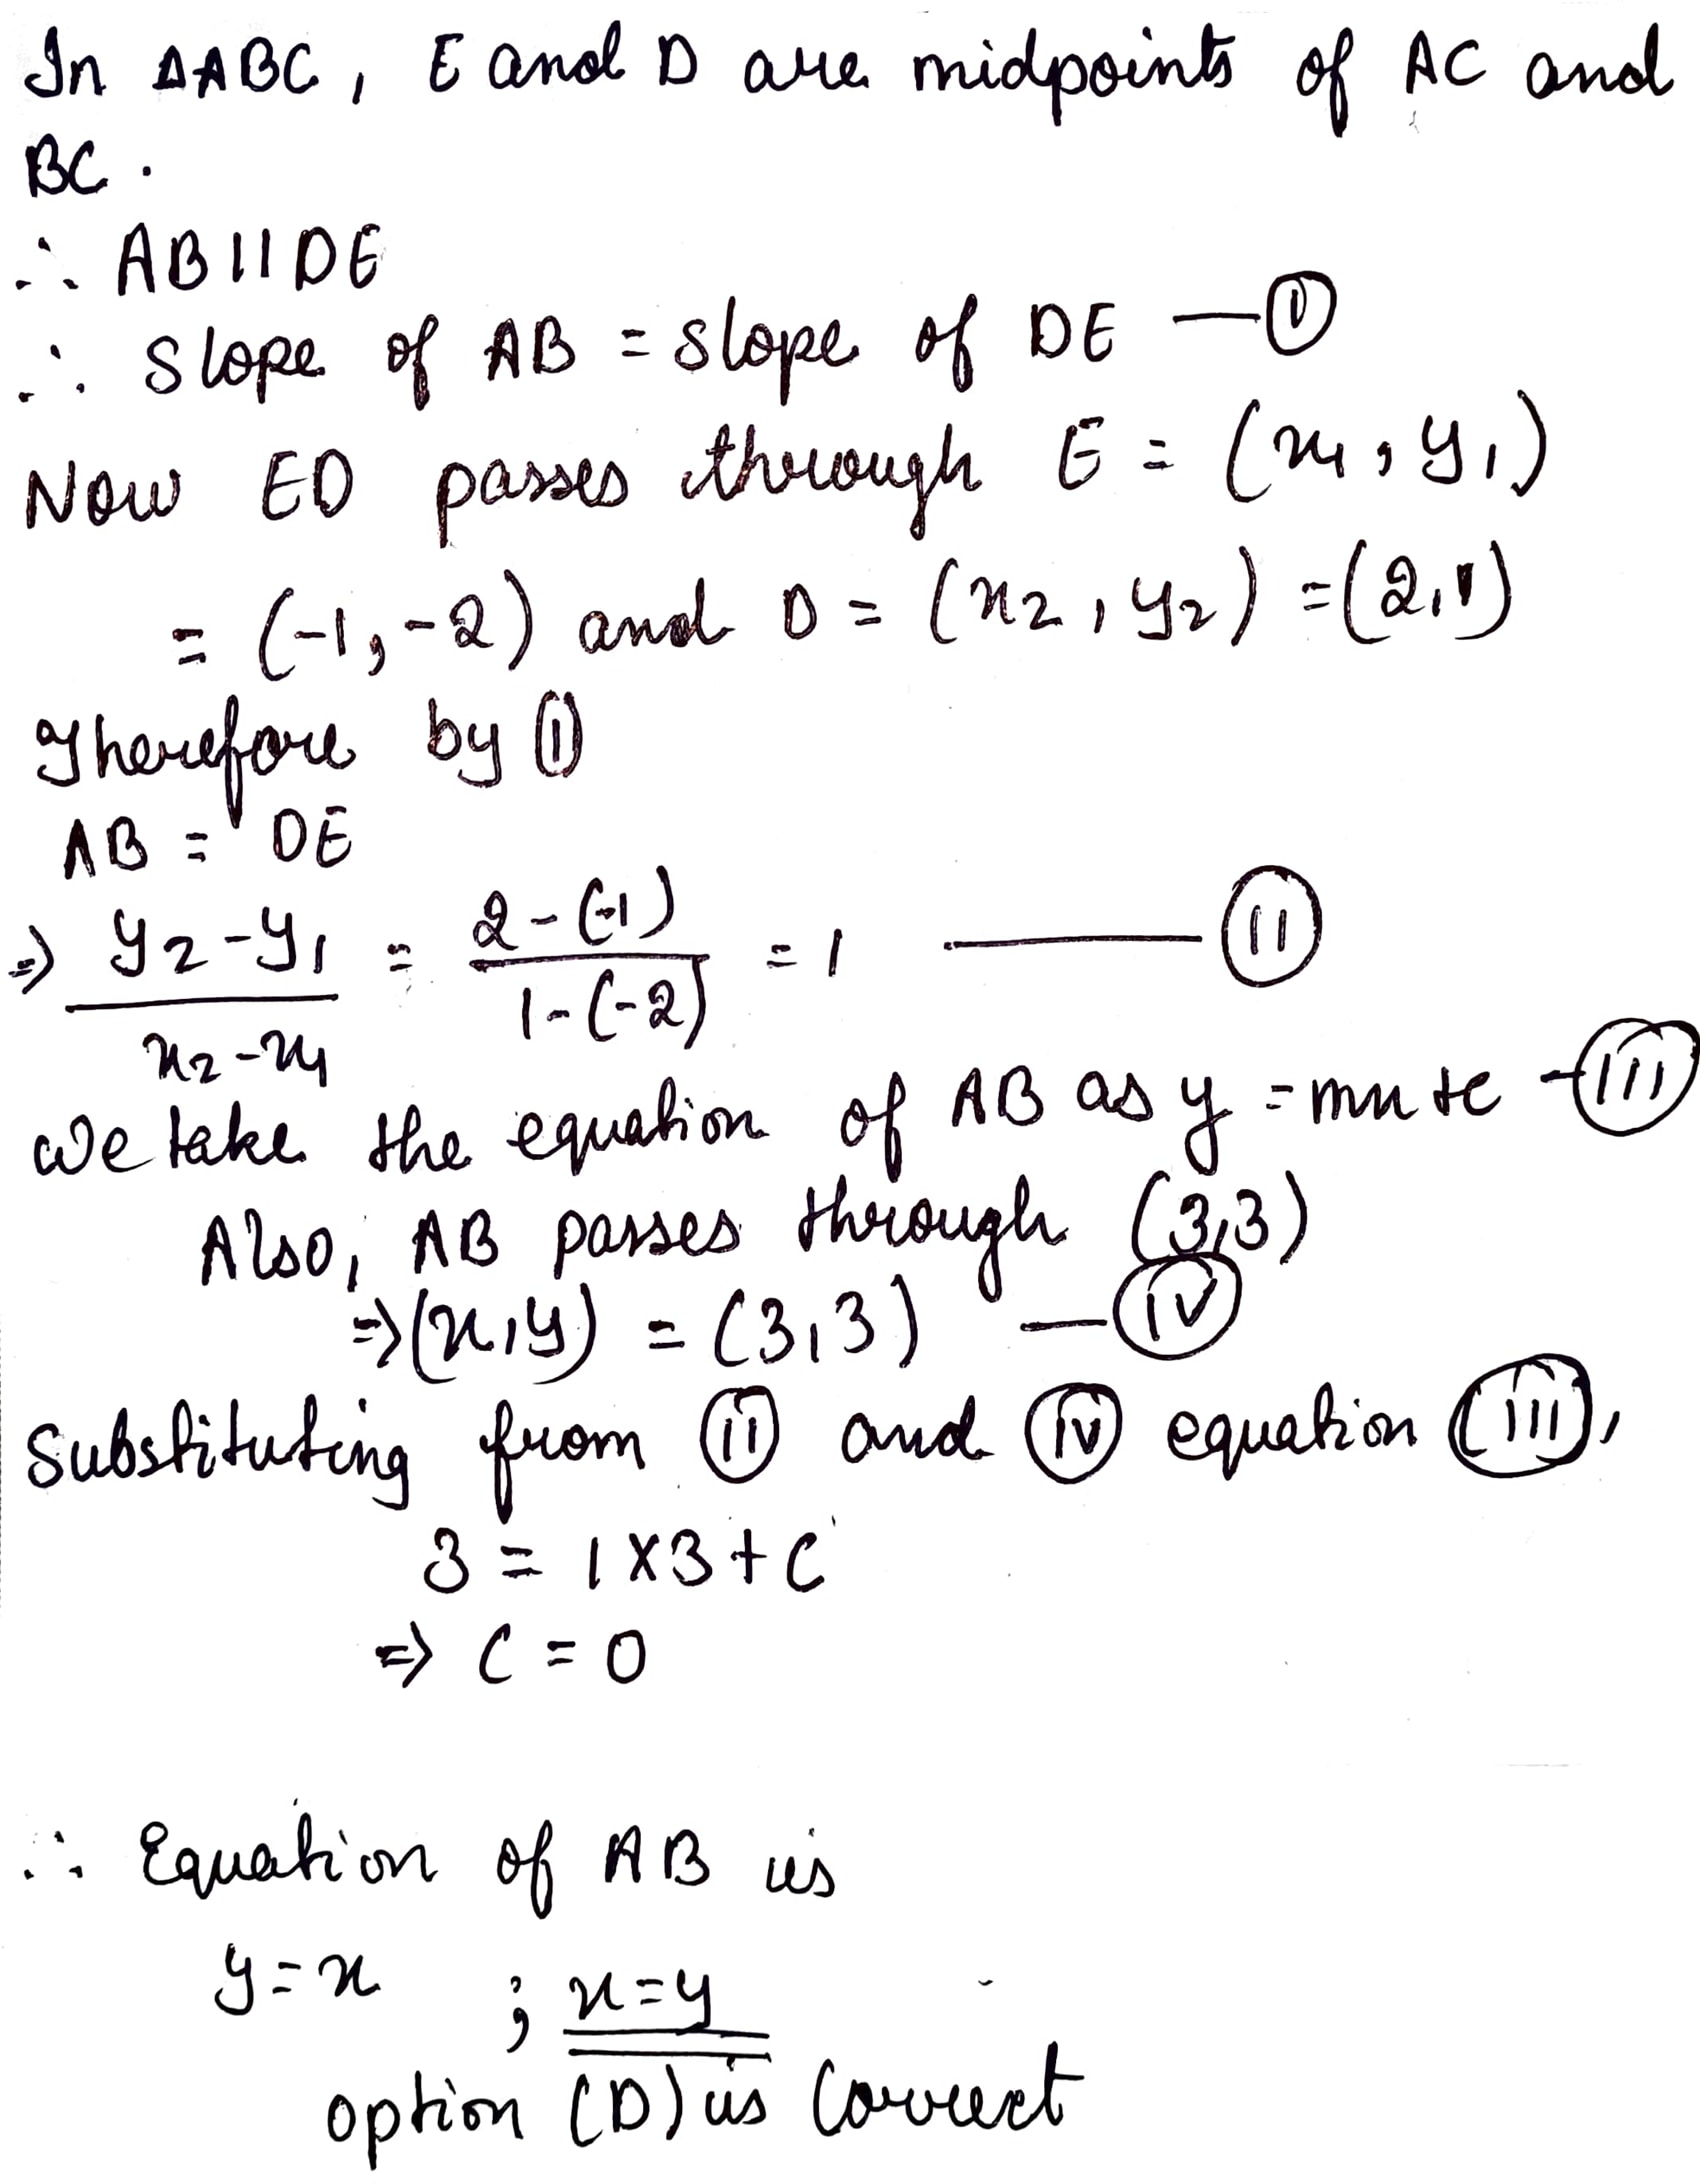 In ΔABC, E and D are midpoints of AC and
BC.
∴ AB || DE
∴ Slope of AB = slope of DE — ①
Now ED passes through E = (x₁, y₁)
= (-1, -2) and D = (x₂, y₂) = (2, 1)
Therefore by ①
AB = DE
⇒ (y₂ - y₁)/(x₂ - x₁) = (2 - (-1))/(1 - (-2)) = 1 — (II)
We take the equation of AB as y = mx + c — (III)
Also, AB passes through (3,3)
⇒ (x, y) = (3, 3) — (IV)
Substituting from (II) and (IV) equation (III),
3 = 1 × 3 + C
⇒ C = 0
∴ Equation of AB is
y = x ; x = y
option (D) is correct